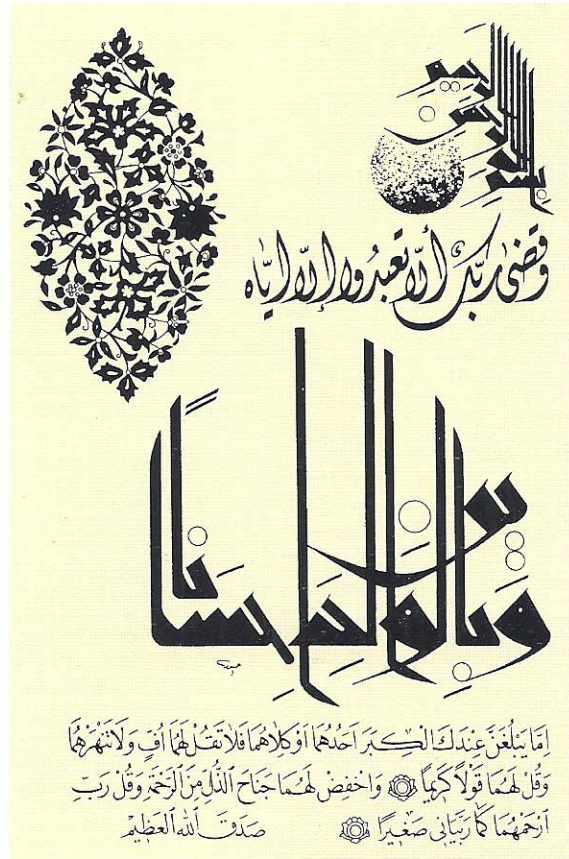 بسم الله الرحمن الرحيم
وقضىٰ ربّك ألّا تعبدوا إلّا ايّاه
وَبِالوَالِدَينِ اِحسَاناً
اِمَّا يَبْلُغَنَّ عِنْدَكَ الْكِبَرَ اَحَدُهُمَا اَوْ كِلَاهُمَا فَلَا تَقُلْ لَهُمَا اُفٍّ وَلَا تَنْهَرْهُمَا
وَقُلْ لَهُمَا قَوْلاً كَرِيماً ۝ وَاخْفِضْ لَهُمَا جَنَاحَ الذُّلِّ مِنَ الرَّحْمَةِ وَقُلْ رَبِّ
ارْحَمْهُمَا كَمَا رَبَّيَانِي صَغِيرًا ۝ صَدَقَ اللهُ الْعَظِيمْ